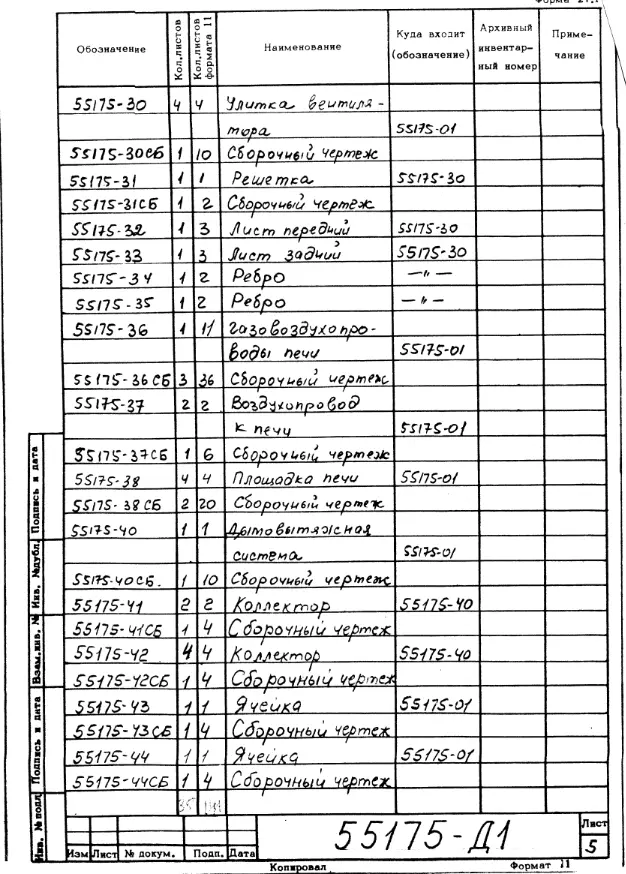 Форма 2
Обозначение Кол.листов Кол.листов формата 11 Наименование Куда входит (обозначение) Архивный инвентарный номер Примечание
55175-30 4 4 Улитка вентиля-
тора 55175-01
55175-30СБ 1 10 Сборочный чертеж
55175-31 1 1 Решетка 55175-30
55175-31СБ 1 2 Сборочный чертеж
55175-32 1 3 Лист передний 55175-30
55175-33 1 3 Лист задний 55175-30
55175-34 1 2 Ребро —"—
55175-35 1 2 Ребро —"—
55175-36 1 11 Газовоздухопро-
воды печи 55175-01
55175-36СБ 3 36 Сборочный чертеж
55175-37 2 2 Воздухопровод
к печи 55175-01
55175-37СБ 1 6 Сборочный чертеж
55175-38 4 4 Площадка печи 55175-01
55175-38СБ 2 20 Сборочный чертеж
55175-40 1 1 Дымовытяжная
система 55175-01
55175-40СБ. 1 10 Сборочный чертеж
55175-41 2 2 Коллектор 55175-40
55175-41СБ 1 4 Сборочный чертеж
55175-42 4 4 Коллектор 55175-40
55175-42СБ 1 4 Сборочный чертеж
55175-43 1 1 Ячейка 55175-01
55175-43СБ 1 4 Сборочный чертеж
55175-44 1 1 Ячейка 55175-01
55175-44СБ 1 4 Сборочный чертеж
35
Инв. № подл Подпись и дата Взам.инв. № Инв. №дубл. Подпись и дата
55175-Д1
Лист
5
Изм Лист № докум. Подп. Дата
Копировал Формат 11